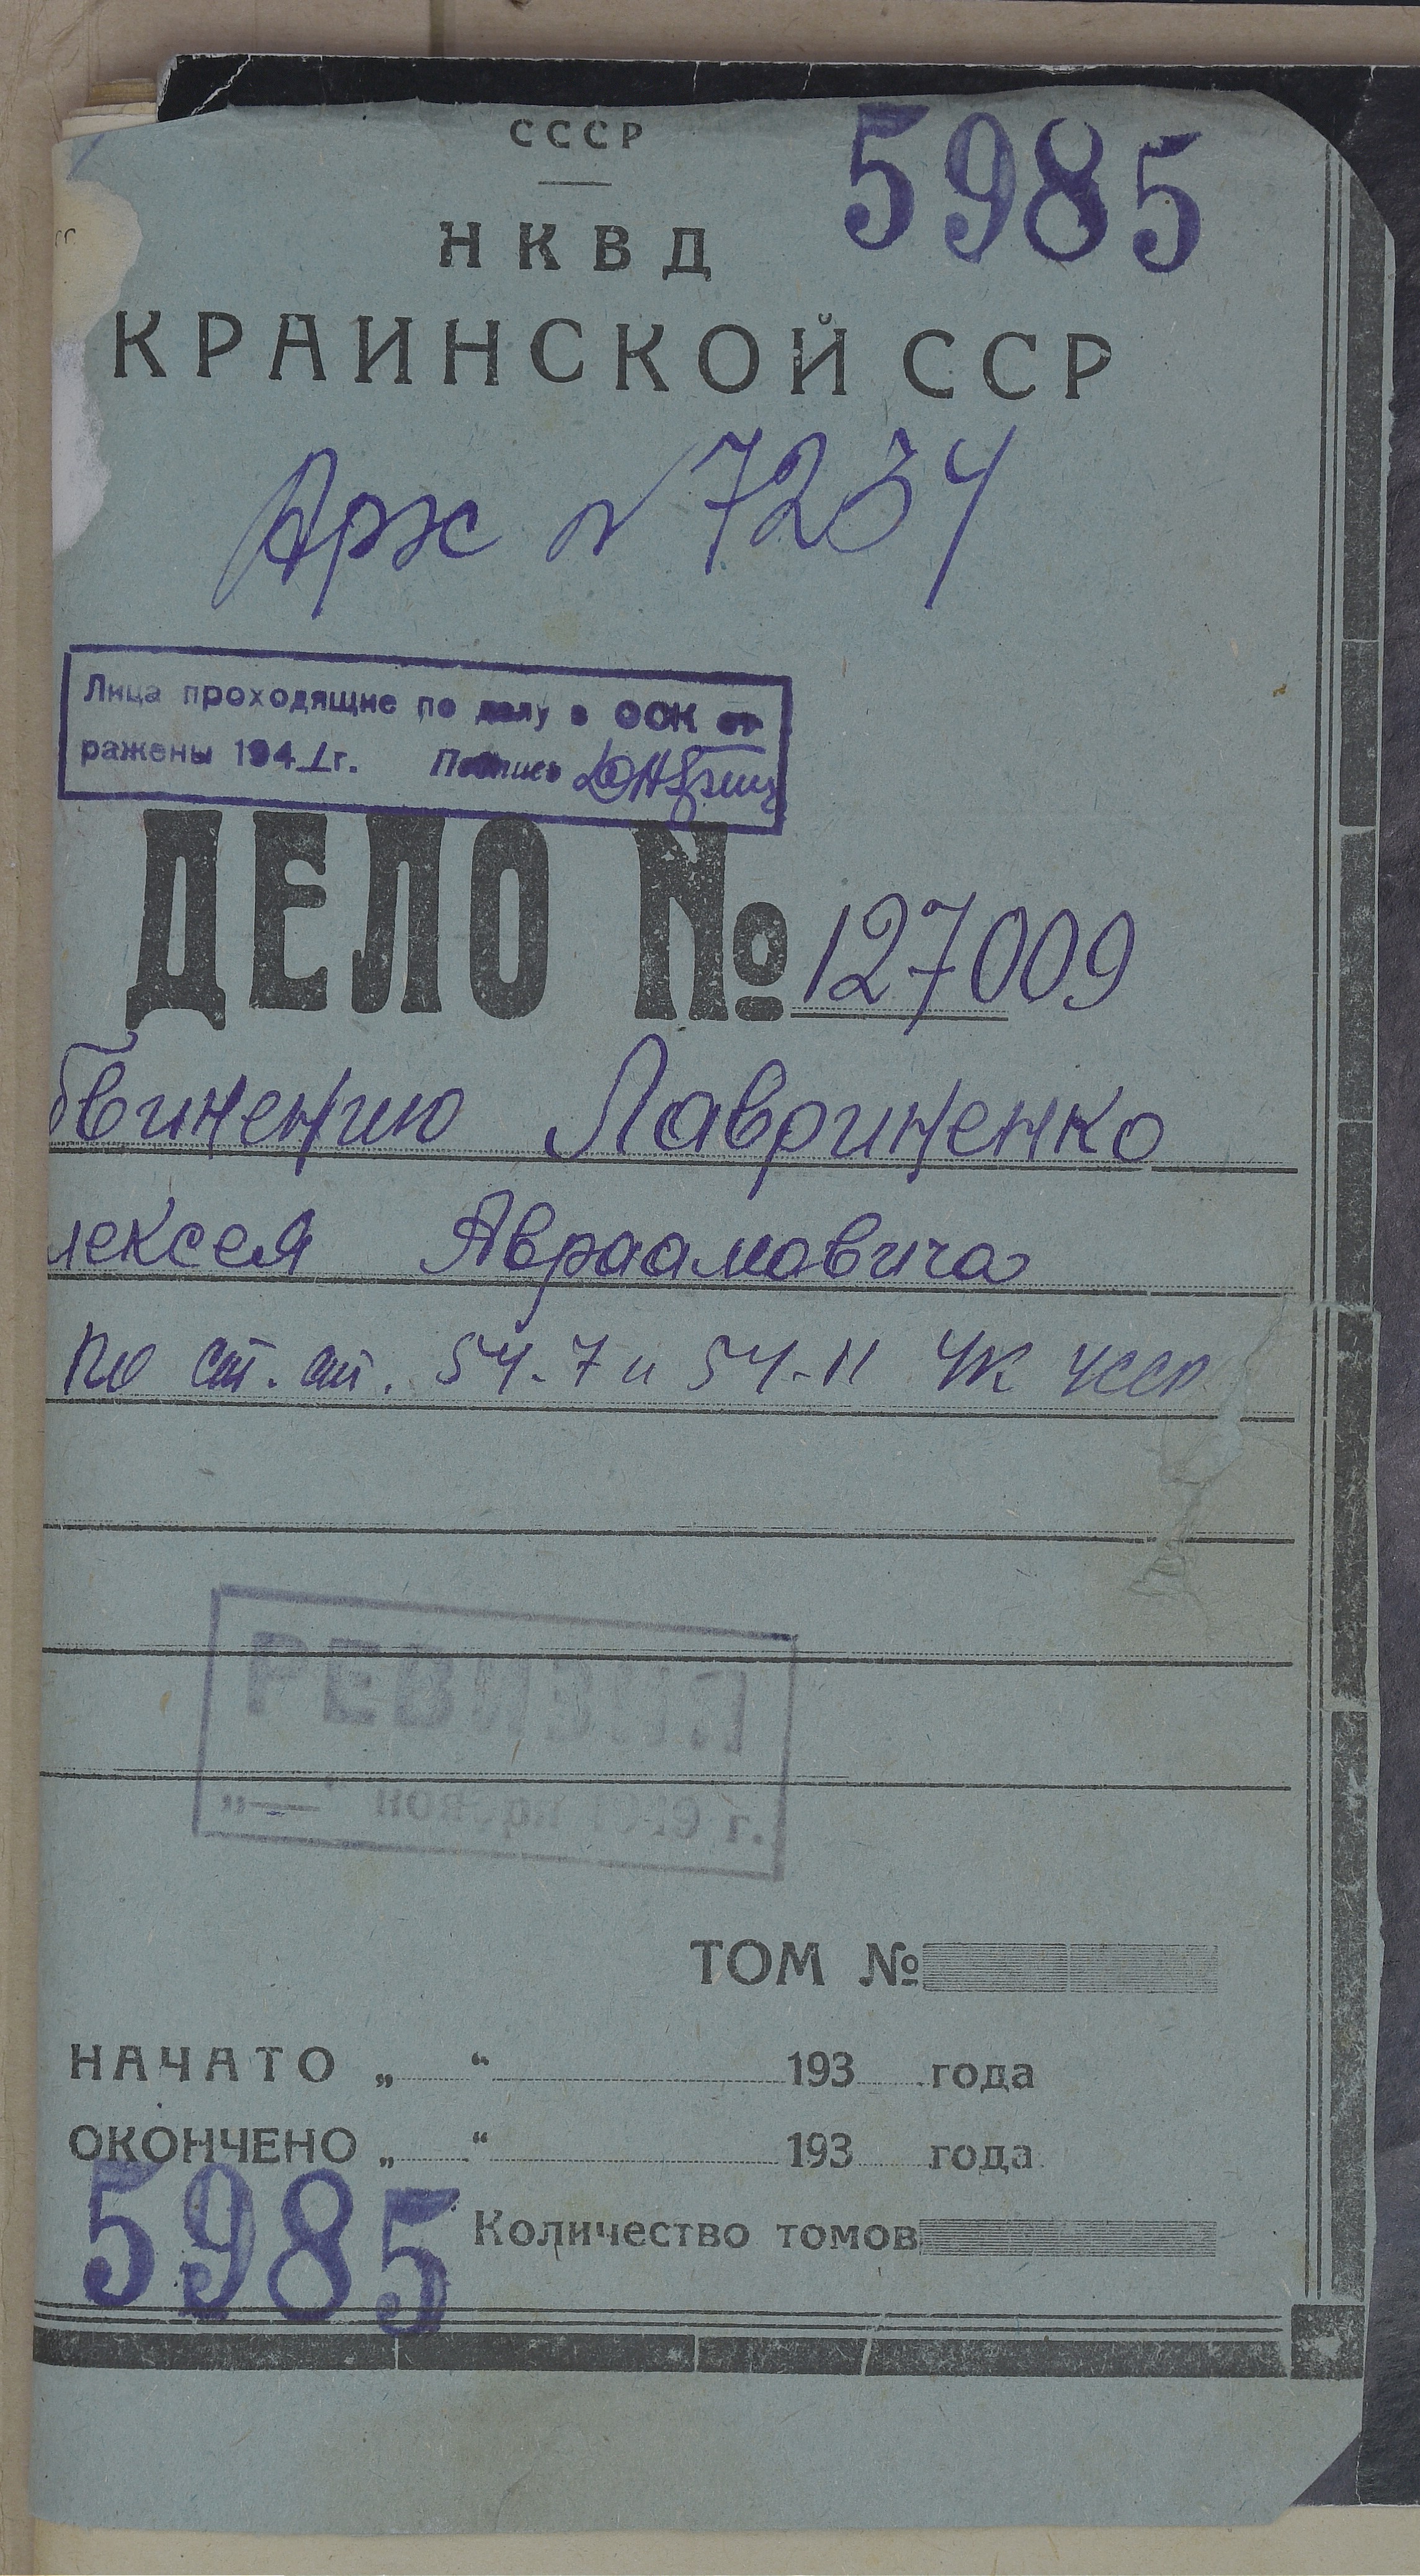 СССР
5985
НКВД
КРАИНСКОЙ ССР
Арх N 7234
Лица проходящие по делу в ООК от-
ражены 1941 г. Подпись
ДЕЛО № 127009
бвинению Лавриненко
лексея Авраамовича
по ст. ст. 54-7 и 54-11 УК УССР
РЕВИЗИЯ
"—"
г.
ТОМ №
НАЧАТО „ “ 193 года
ОКОНЧЕНО „ “ 193 года
5985
Количество томов